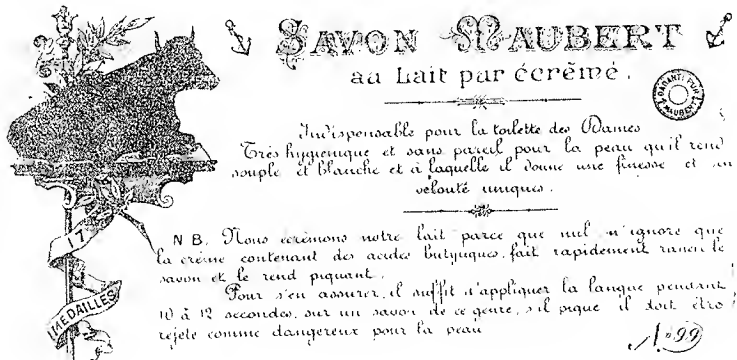 SAVON MAUBERT
au Lait pur écrêmé.
GARANTI PUR
MAUBERT
Indispensable pour la toilette des Dames
Très hygienique et sans pareil pour la peau qu'il rend
souple et blanche et à laquelle il donne une finesse et un
velouté uniques.
17
MEDAILLES
N B. Nous écrêmons notre lait parce que nul n'ignore que
la crème contenant des acides butyriques, fait rapidement rancir le
savon et le rend piquant.
Pour s'en assurer, il suffit d'appliquer la langue pendant
10 à 12 secondes, sur un savon de ce genre, s'il pique il doit être
rejeté comme dangereux pour la peau
N° 99